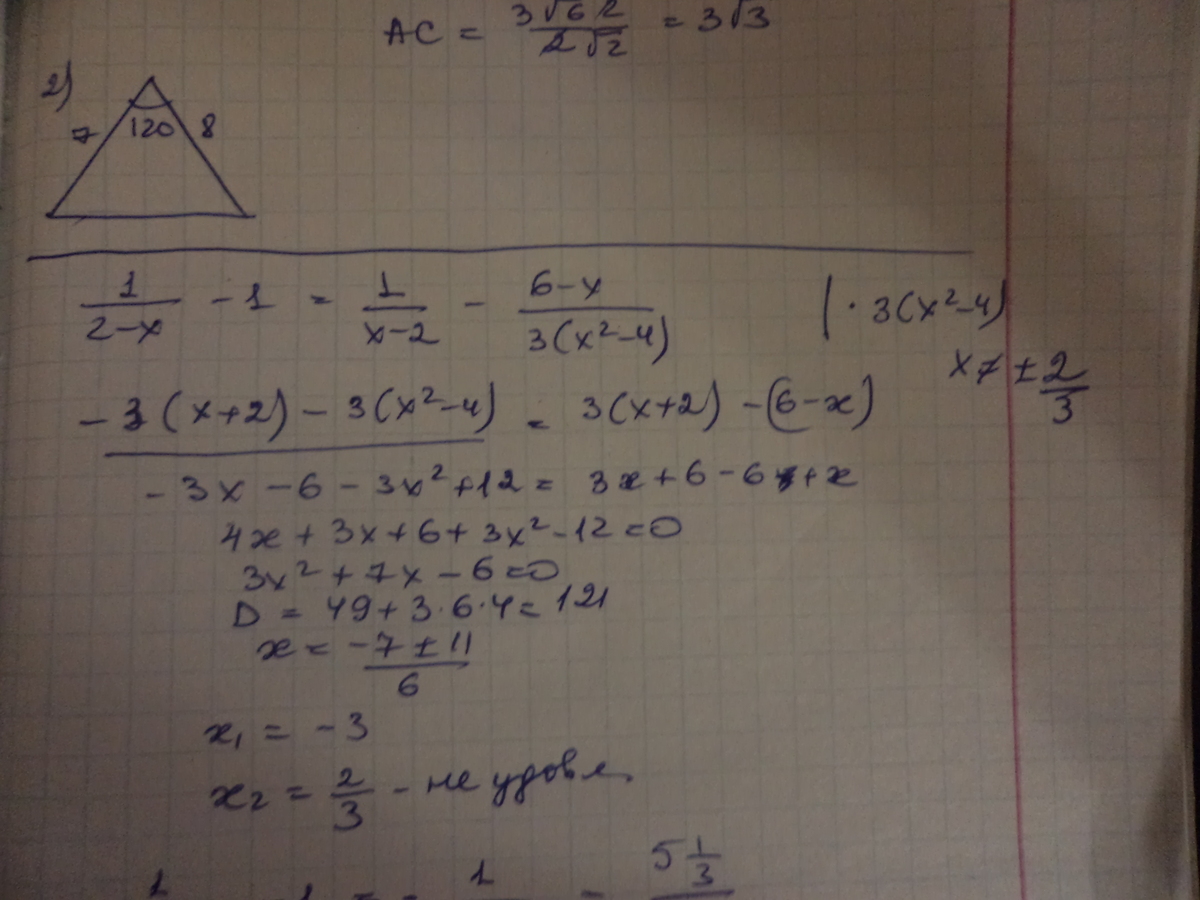 AC = 3√6 2 / 2√2 = 3√3
2)
7 120 8
1/(2-x) - 1 = 1/(x-2) - (6-x)/(3(x²-4)) | · 3(x²-4)
x ≠ ± 2/3
-3(x+2) - 3(x²-4) = 3(x+2) - (6-x)
-3x - 6 - 3x² + 12 = 3x + 6 - 6 + x
4x + 3x + 6 + 3x² - 12 = 0
3x² + 7x - 6 = 0
D = 49 + 3·6·4 = 121
x = (-7 ± 11)/6
x₁ = -3
x₂ = 2/3 - не удовл.
5 1/3